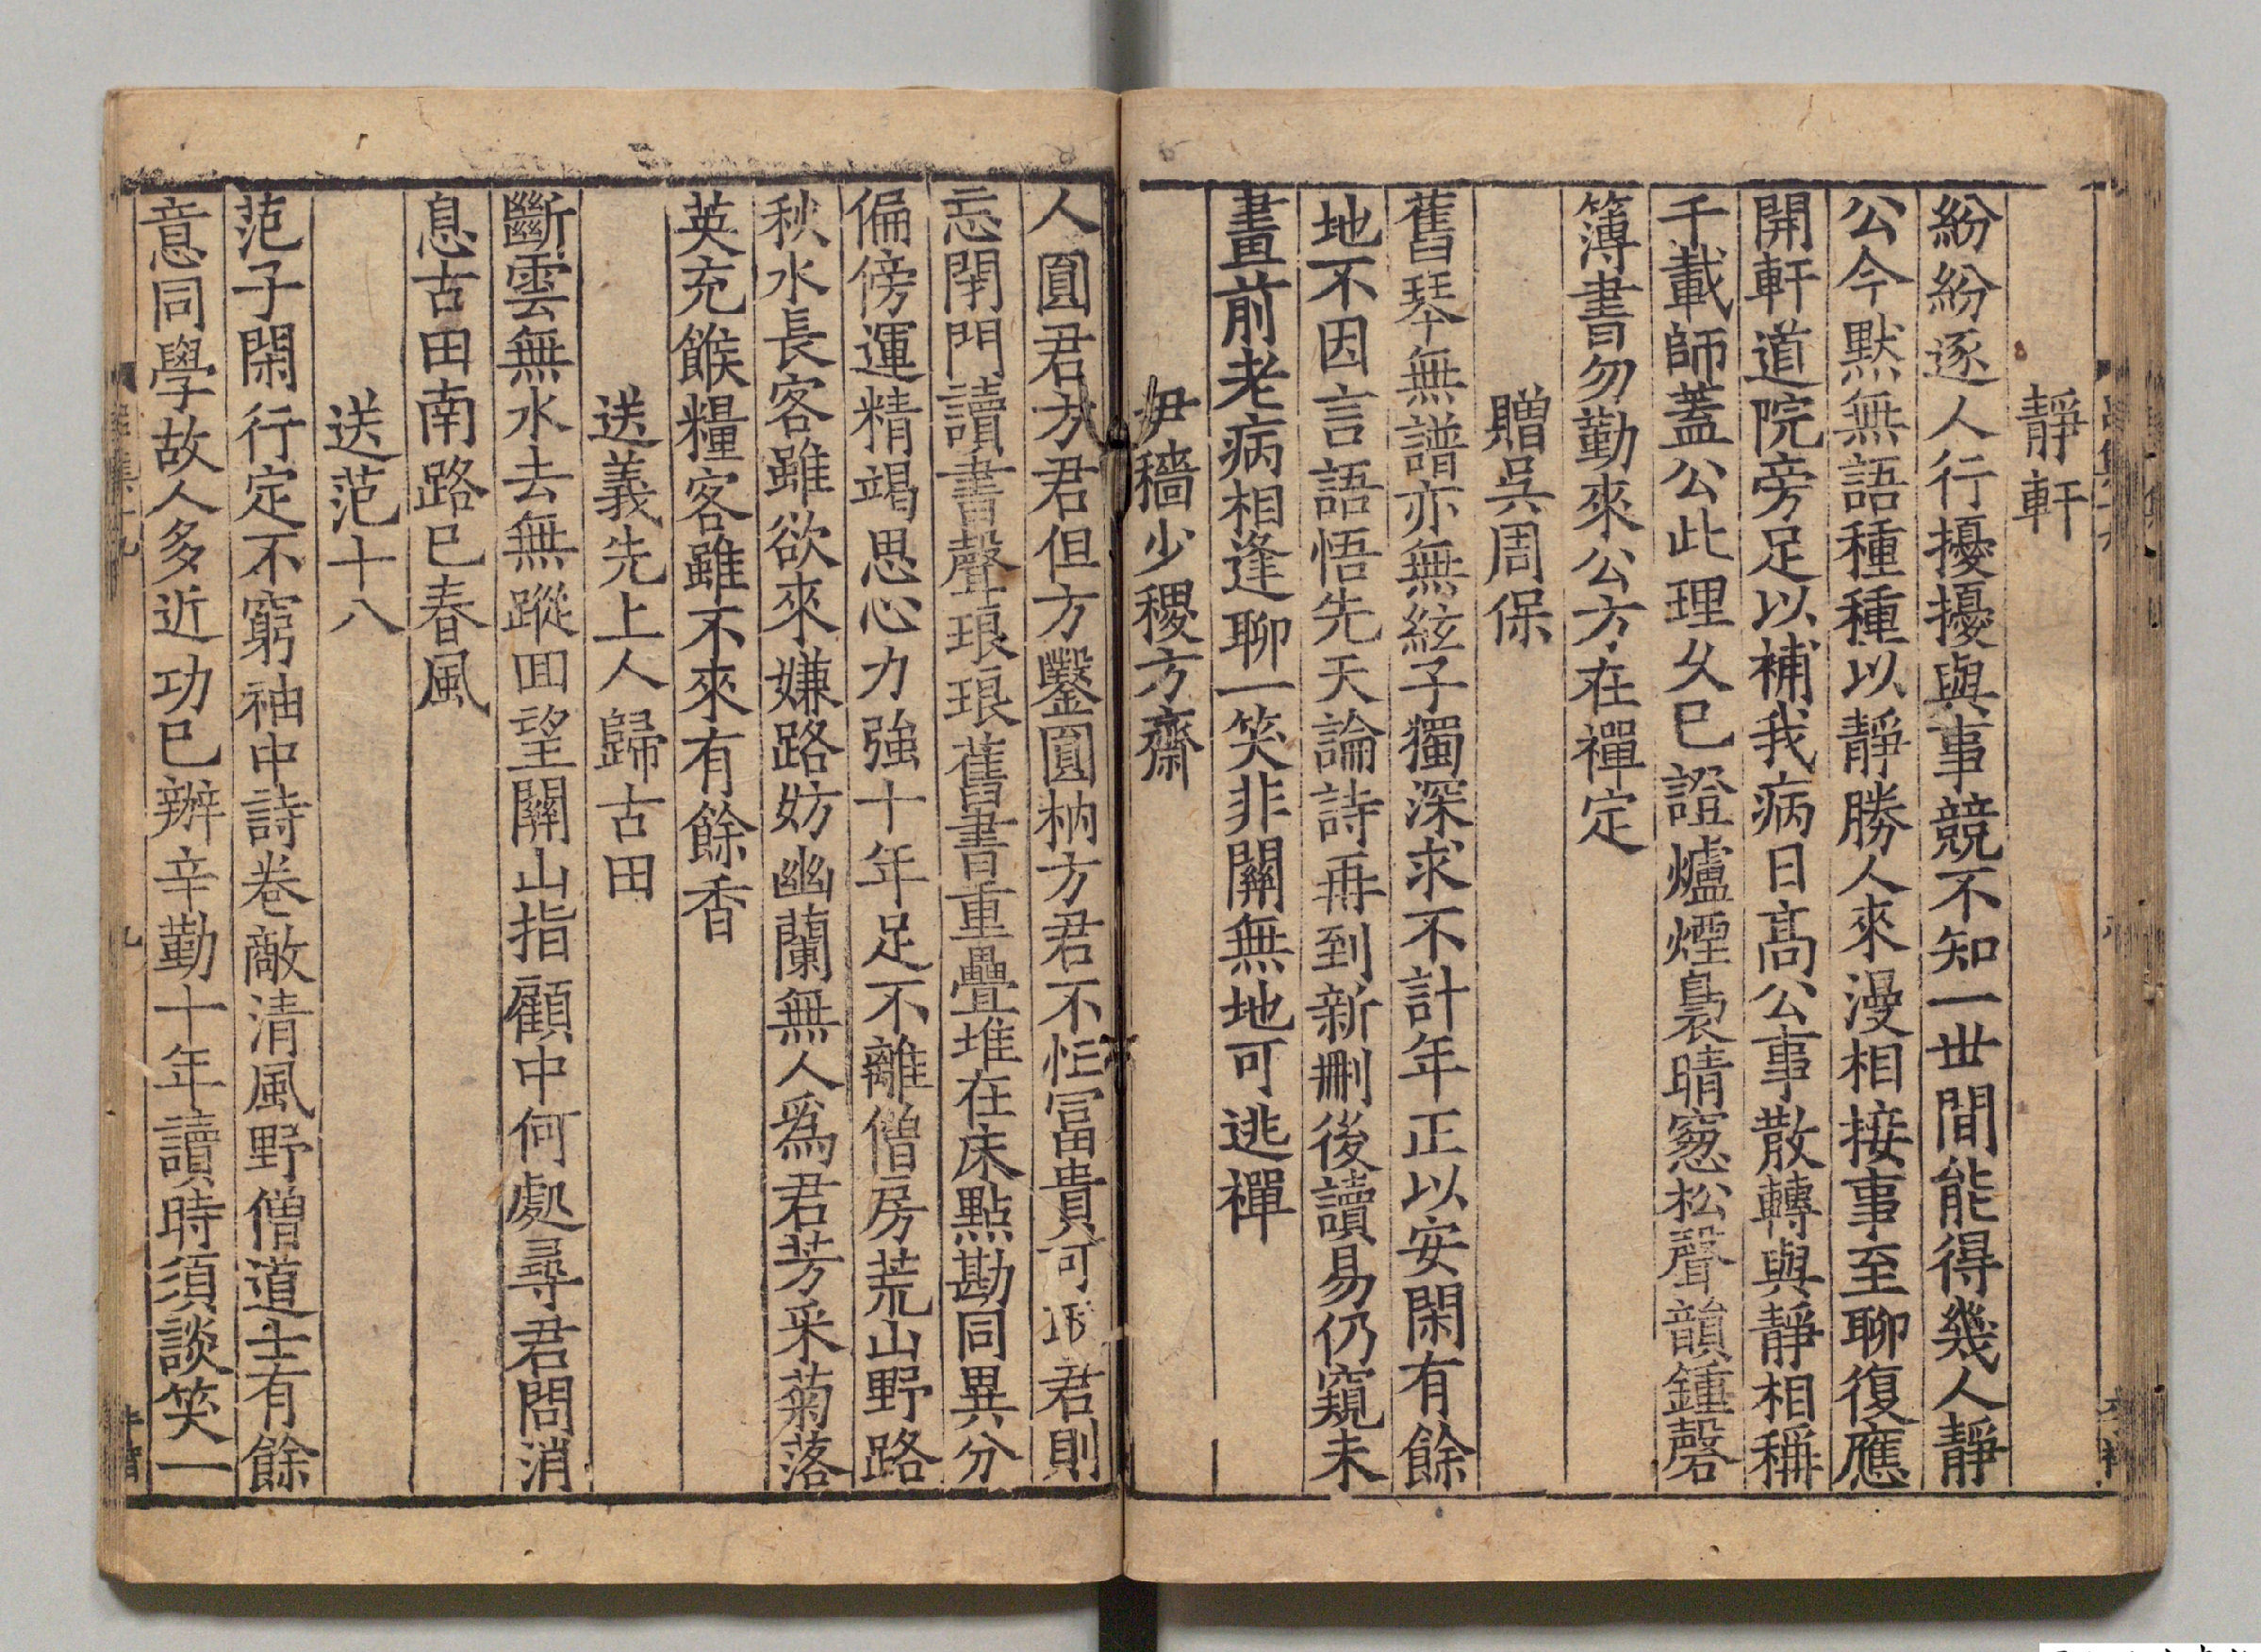 靜軒
紛紛逐人行擾擾與事競不知一世間能得幾人靜
公今默無語種種以靜勝人來漫相接事至聊復應
開軒道院旁足以補我病日高公事散轉與靜相稱
千載師蓋公此理久已證爐煙裊晴窓松聲韻鍾磬
簿書勿勤來公方在禪定
贈吳周保
舊琴無譜亦無絃子獨深求不計年正以安閑有餘
地不因言語悟先天論詩再到新刪後讀易仍窺未
畫前老病相逢聊一笑非關無地可逃禪
尹穡少稷方齋
人圓君方君但方鑿圓枘方君不恠富貴可君則
忘閉門讀書聲琅琅舊書重疊堆在床點勘同異分
偏傍運精竭思心力強十年足不離僧房荒山野路
秋水長客雖欲來嫌路妨幽蘭無人爲君芳采菊落
英充餱糧客雖不來有餘香
送義先上人歸古田
斷雲無水去無蹤回望關山指顧中何處尋君問消
息古田南路已春風
送范十八
范子閑行定不窮袖中詩卷敵清風野僧道士有餘
意同學故人多近功已辦辛勤十年讀時須談笑一